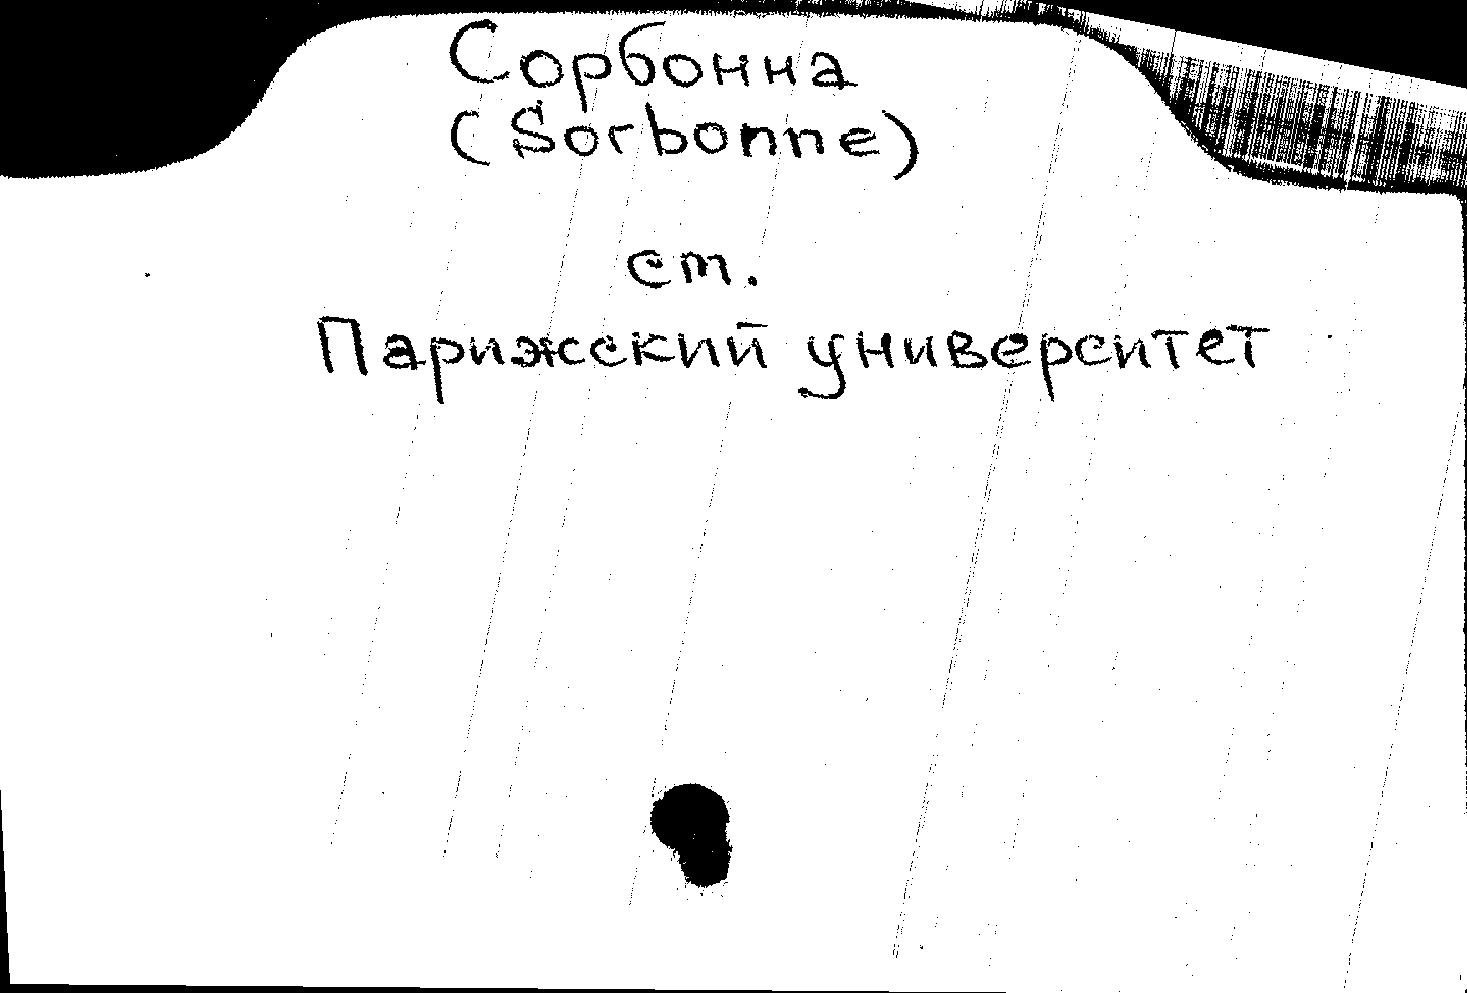 Сорбонна
(Sorbonne)
ст.
Парижский университет